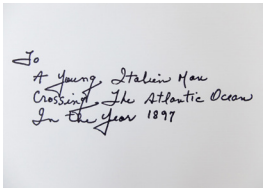 To
A Young Italien Man
Crossing The Atlantic Ocean
In the Year 1897